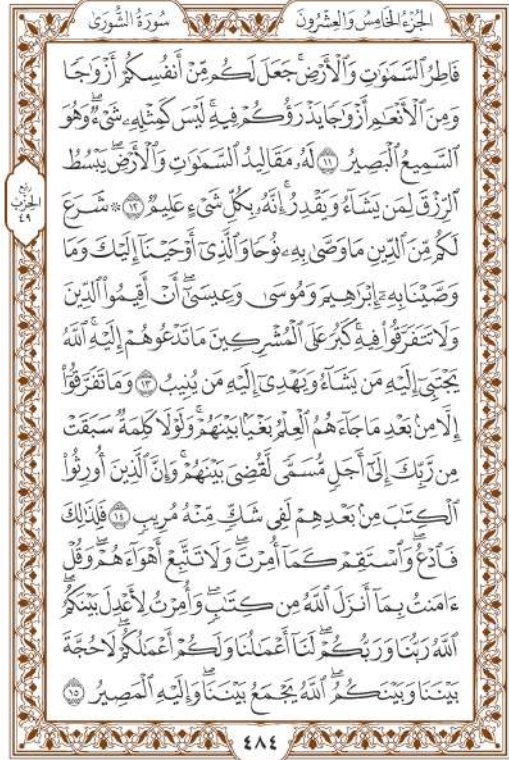 الجُزْءُ الخَامِسُ وَالعِشْرُونَ سُورَةُ الشُّورَىٰ
فَاطِرُ ٱلسَّمَٰوَٰتِ وَٱلْأَرْضِۚ جَعَلَ لَكُم مِّنْ أَنفُسِكُمْ أَزْوَٰجًا
وَمِنَ ٱلْأَنْعَٰمِ أَزْوَٰجًا يَذْرَؤُكُمْ فِيهِۚ لَيْسَ كَمِثْلِهِۦ شَىْءٌۖ وَهُوَ
ٱلسَّمِيعُ ٱلْبَصِيرُ ١١ لَهُۥ مَقَالِيدُ ٱلسَّمَٰوَٰتِ وَٱلْأَرْضِۖ يَبْسُطُ
ٱلرِّزْقَ لِمَن يَشَآءُ وَيَقْدِرُۚ إِنَّهُۥ بِكُلِّ شَىْءٍ عَلِيمٌ ١٢ ۞ شَرَعَ
رُبْعُ الحِزْبِ ٤٩
لَكُم مِّنَ ٱلدِّينِ مَا وَصَّىٰ بِهِۦ نُوحًا وَٱلَّذِىٓ أَوْحَيْنَآ إِلَيْكَ وَمَا
وَصَّيْنَا بِهِۦٓ إِبْرَٰهِيمَ وَمُوسَىٰ وَعِيسَىٰٓۖ أَنْ أَقِيمُوا۟ ٱلدِّينَ
وَلَا تَتَفَرَّقُوا۟ فِيهِۚ كَبُرَ عَلَى ٱلْمُشْرِكِينَ مَا تَدْعُوهُمْ إِلَيْهِۚ ٱللَّهُ
يَجْتَبِىٓ إِلَيْهِ مَن يَشَآءُ وَيَهْدِىٓ إِلَيْهِ مَن يُنِيبُ ١٣ وَمَا تَفَرَّقُوٓا۟
إِلَّا مِنۢ بَعْدِ مَا جَآءَهُمُ ٱلْعِلْمُ بَغْيًۢا بَيْنَهُمْۚ وَلَوْلَا كَلِمَةٌ سَبَقَتْ
مِن رَّبِّكَ إِلَىٰٓ أَجَلٍ مُّسَمًّى لَّقُضِىَ بَيْنَهُمْۚ وَإِنَّ ٱلَّذِينَ أُورِثُوا۟
ٱلْكِتَٰبَ مِنۢ بَعْدِهِمْ لَفِى شَكٍّ مِّنْهُ مُرِيبٍ ١٤ فَلِذَٰلِكَ
فَٱدْعُۖ وَٱسْتَقِمْ كَمَآ أُمِرْتَۖ وَلَا تَتَّبِعْ أَهْوَآءَهُمْۖ وَقُلْ
ءَامَنتُ بِمَآ أَنزَلَ ٱللَّهُ مِن كِتَٰبٍۖ وَأُمِرْتُ لِأَعْدِلَ بَيْنَكُمُۖ
ٱللَّهُ رَبُّنَا وَرَبُّكُمْۖ لَنَآ أَعْمَٰلُنَا وَلَكُمْ أَعْمَٰلُكُمْۖ لَا حُجَّةَ
بَيْنَنَا وَبَيْنَكُمُۖ ٱللَّهُ يَجْمَعُ بَيْنَنَاۖ وَإِلَيْهِ ٱلْمَصِيرُ ١٥
٤٨٤